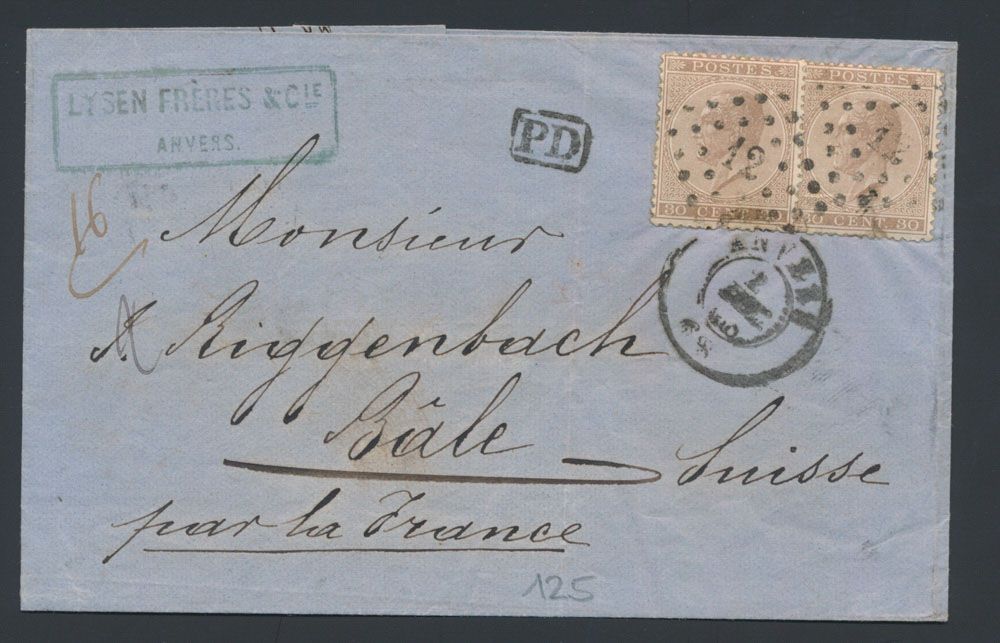 LYSEN FRÈRES & CIE
ANVERS.
PD
POSTES
30 CENT 30
12
POSTES
30 CENT 30
12
ANVERS
16
Monsieur
Riggenbach
Bâle Suisse
par la France
125